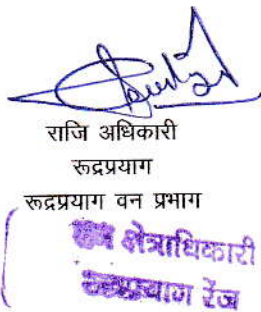 राजि अधिकारी
रूद्रप्रयाग
रूद्रप्रयाग वन प्रभाग
वन क्षेत्राधिकारी
रूद्रप्रयाग रेंज